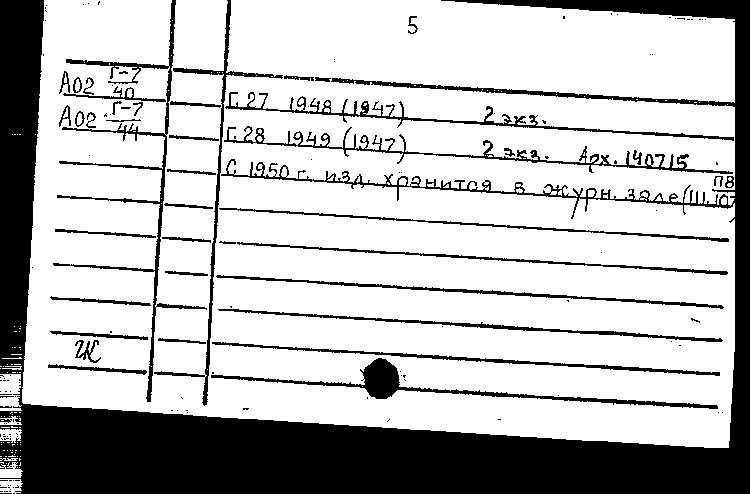 5
А02 Г-7/40 Г. 27 1948 (1947) 2 экз.
А02 Г-7/44 Г. 28 1949 (1947) 2 экз. Арх. 140715
С 1950 г. изд. хранится в журн. зале (Ш. П8/107)
ГК